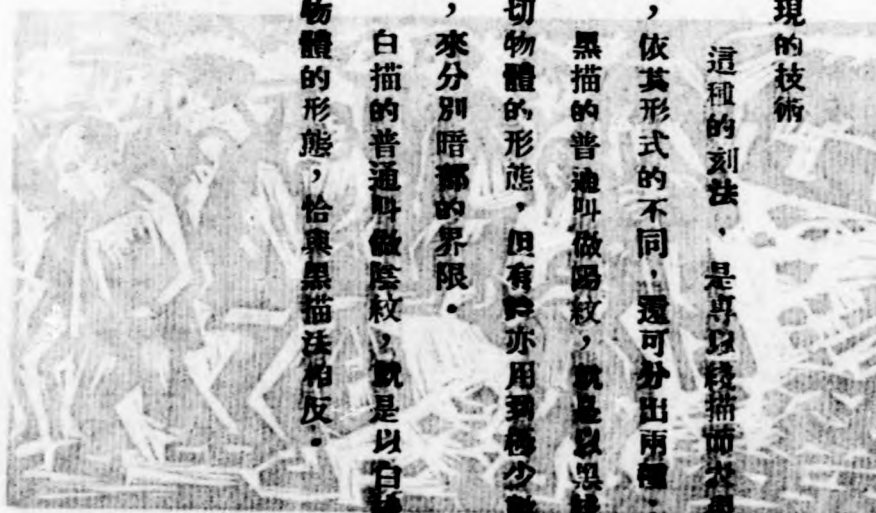 現的技術
這種的刻法，是專以綫描而表現
，依其形式的不同，還可分出兩種．
黑描的普通叫做陽紋，就是以黑綫
切物體的形態，但有時亦用到極少數
，來分別暗部的界限．
白描的普通叫做陰紋，就是以白綫
物體的形態，恰與黑描法相反．